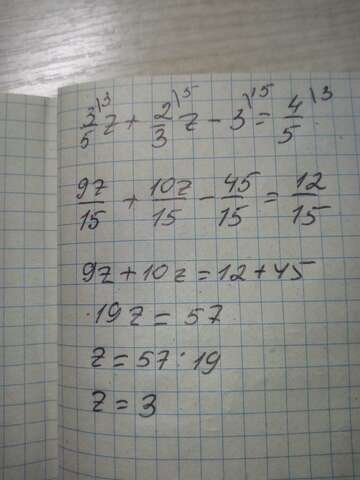 3/5^\3 z + 2/3^\5 z - 3^\15 = 4/5^\3
9z/15 + 10z/15 - 45/15 = 12/15
9z + 10z = 12 + 45
19z = 57
z = 57 : 19
z = 3